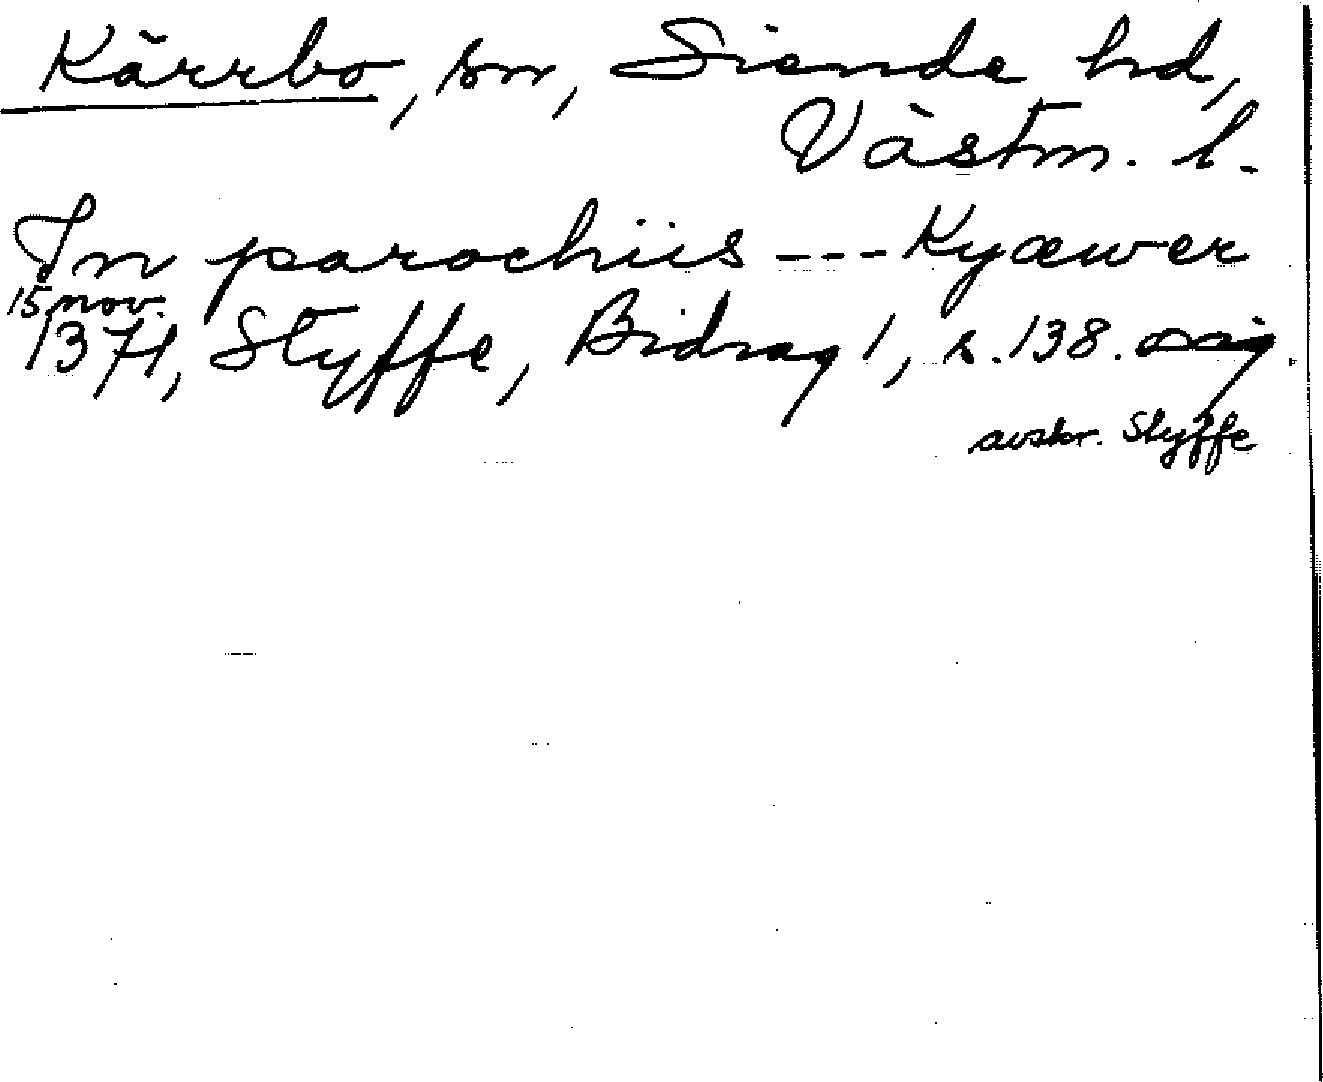 Kärrbo, sn, Siende hd,
Västm. l.
In parochiis --- Kyæwer
15 nov.
1371, Styffe, Bidrag 1, s. 138.
avskr. Styffe